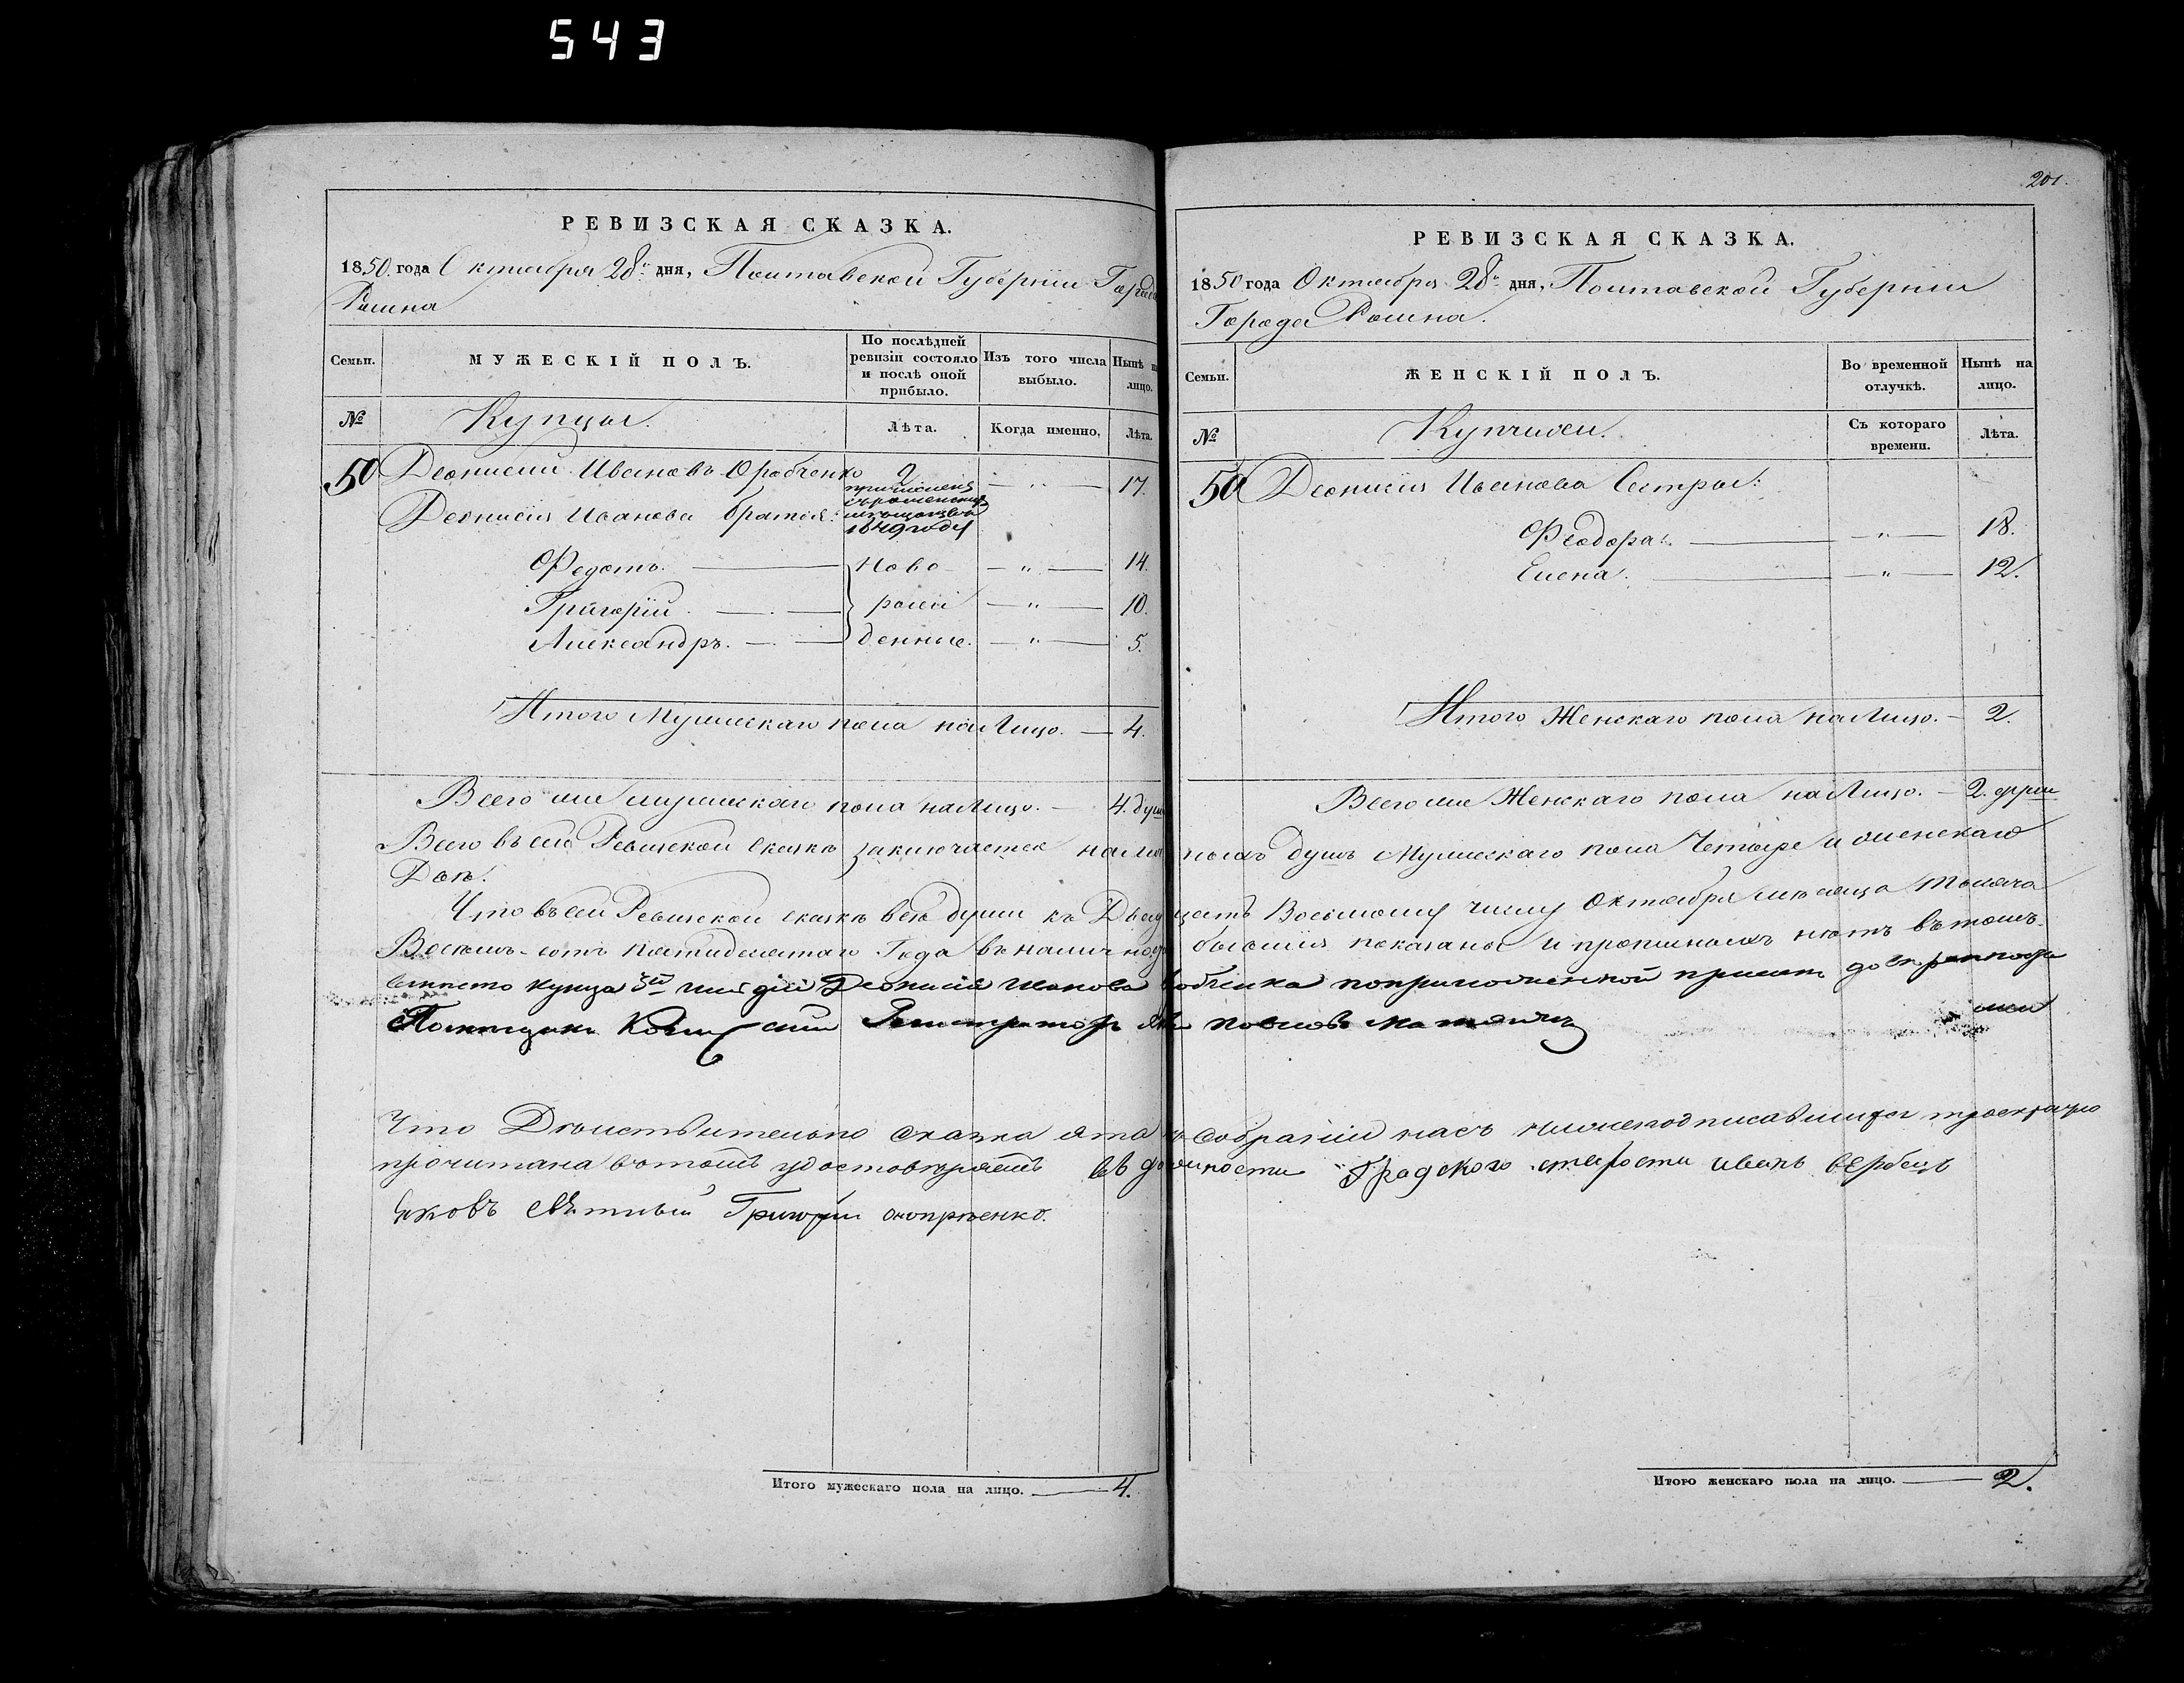 543
РЕВИЗСКАЯ СКАЗКА.
1850. года Октября 28го дня, Полтавской Губерніи Города
Ромна
Семьи. МУЖЕСКІЙ ПОЛЪ. По послѣдней ревизіи состояло и послѣ оной прибыло. Изъ того числа выбыло. Нынѣ на лицо.
№ Купцы. Лѣта. Когда именно. Лѣта.
50 Деонисій Ивановъ 2 — „ — 17.
Деонисія Иванова братья: 1849 году
Федотъ. — Ново — „ — 14.
Григорій. — рож — „ — 10.
Александръ. — денные. — „ — 5.
Итого Мужескаго пола на Лицо. — 4.
Всего же мужескаго пола на Лицо. — 4. душ
201.
РЕВИЗСКАЯ СКАЗКА.
1850 года Октября 28го дня, Полтавской Губерніи
Города Ромна.
Семьи. ЖЕНСКІЙ ПОЛЪ. Во временной отлучкѣ. Нынѣ на лицо.
№ Купчихи. Съ котораго времени. Лѣта.
50 Деонисія Иванова Сестры:
Феодора. — „ — 18.
Елена. — „ — 12.
Итого Женскаго пола на Лицо. — 2.
Всего же Женскаго пола на Лицо. — 2. души
Всего въ сей Ревизской сказкѣ заключается душъ Мужескаго пола Четыре и женскаго
Двѣ.
Что въ сей Ревизской сказкѣ всѣ души къ Двадцать Восьмому числу Октября мѣсяца Тысяча
Восемь-сотъ пятидесятаго Года показаны и прописныхъ нѣтъ въ томъ
вмѣсто купца 3й гилдіи Деонисія Иванова
Что Дѣйствительно сказка ята въ собраніи насъ нижеподписавшихся троекратно
прочитана вотомъ удостовѣряемъ въ должности Градского старосты Иванъ
Яковъ Григорій
Итого мужескаго пола на лицо. — 4.
Итого женскаго пола на лицо. — 2.